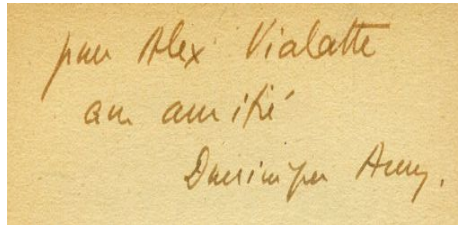 pour Alex Vialatte
en amitié
Dominique Aury.